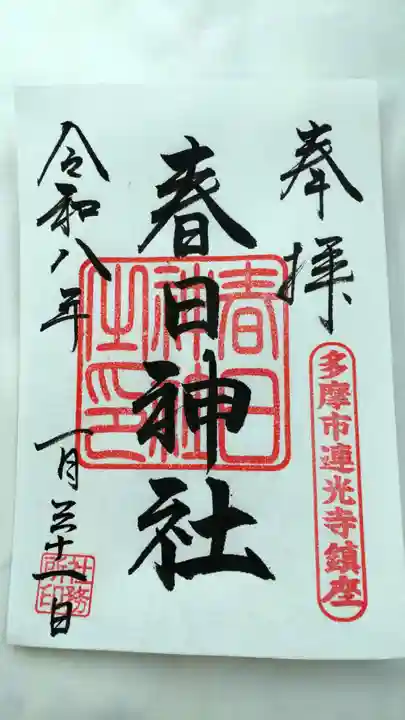 奉拝
多摩市連光寺鎮座
春日神社
春日神社之印
令和八年
一月三十一日
社務所印